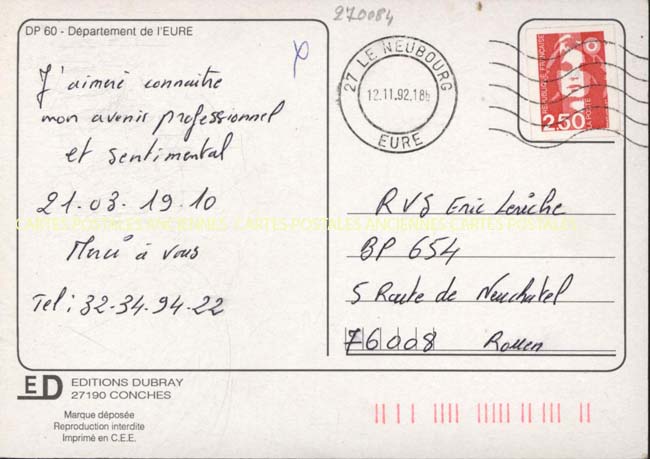 270084
DP 60 - Département de l'EURE
J'aimeré connaitre
mon avenir professionnel
et sentimental
21.03.19.10
Merci à vous
Tel: 32-34-94-22
27 LE NEUBOURG
12.11.92.18H
EURE
RÉPUBLIQUE FRANÇAISE
2,50
LA POSTE
RVS Eric Leriche
BP 654
5 Route de Neuchatel
76008 Rouen
CARTES POSTALES ANCIENNES CARTES POSTALES ANCIENNES CARTES POSTALES
ED EDITIONS DUBRAY
27190 CONCHES
Marque déposée
Reproduction interdite
Imprimé en C.E.E.